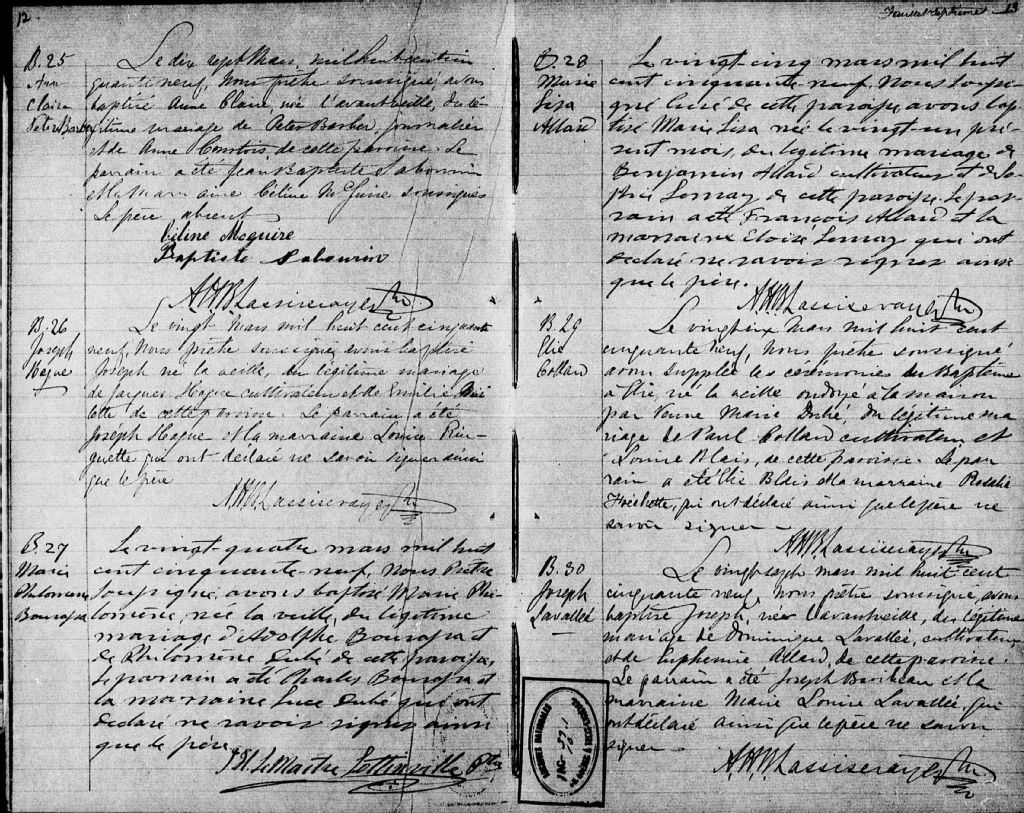 12
B. 25
Ann
Claire
Peter Barber
Le dix sept Mars, mil huit cent cin
quante neuf, Nous prêtre soussigné, avons
baptisé Anne Claire, née l'avant veille, du lé
gitime mariage de Peter Barber, journalier
et de Anne de cette paroisse. Le
parrain a été Jean Baptiste Sabourin
et la marraine Céline McGuire soussignés
Le père absent
Céline Mcguire
Baptiste Sabourin
B. 26
Joseph
Hague
Le vingt Mars mil huit cent cinquante
neuf, Nous prêtre soussigné avons baptisé
Joseph né la veille, du légitime mariage
de Jacques Hague cultivateur et de Emilie
lette de cette paroisse. Le parrain a été
Joseph Hague et la marraine Louise Rin-
guette qui ont déclaré ne savoir signer ainsi
que le père
B. 27
Marie
Philomène
Bourassa
Le vingt-quatre mars mil huit
cent cinquante-neuf, Nous Prêtre
soussigné, avons baptisé Marie Phi-
lomène, née la veille, du légitime
mariage d'Adolphe Bourassa et
de Philomène Dubé de cette paroisse,
Le parrain a été Charles Bourassa et
la marraine Luce Dubé qui ont
déclaré ne savoir signer ainsi
que le père.
Feuillet septième 13
B. 28
Marie
Lisa
Allard
Le vingt cinq mars mil huit
cent cinquante-neuf, Nous soussi-
gné Curé de cette paroisse avons bap
tisé Marie Lisa née le vingt-un pré-
sent mois, du légitime mariage de
Benjamin Allard cultivateur et de So-
phie Lemay de cette paroisse. Le par-
rain a été François Allard et la
marraine Eloise Lemay qui ont
déclaré ne savoir signer ainsi
que le père.
B. 29
Elie
Collard
Le vingt six Mars mil huit cent
cinquante neuf, Nous prêtre soussigné
avons supplée les cérémonies du Baptême
à Elie, né la veille ondoyé à la maison
par Veuve Marie Dubé, du légitime ma
riage de Paul Collard cultivateur et
Louise Blais, de cette paroisse. Le par
rain a été Elie Blais et la marraine Rosalie
Fréchette, qui ont déclaré ainsi que le père ne
savoir signer
B. 30
Joseph
Lavallée
Le vingt sept mars mil huit cent
cinquante neuf, Nous prêtre soussigné avons
baptisé Joseph, né l'avant veille, du légitime
mariage de Dominique Lavallée, cultivateur
et de Euphemie Allard, de cette paroisse.
Le parrain a été Joseph Baribeau et la
marraine Marie Louise Lavallée, qui
ont déclaré ainsi que le père ne savoir
signer